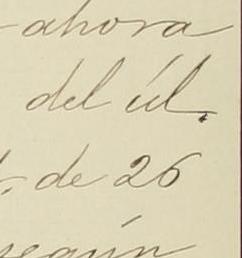 ahora
del úl.
de 26
según